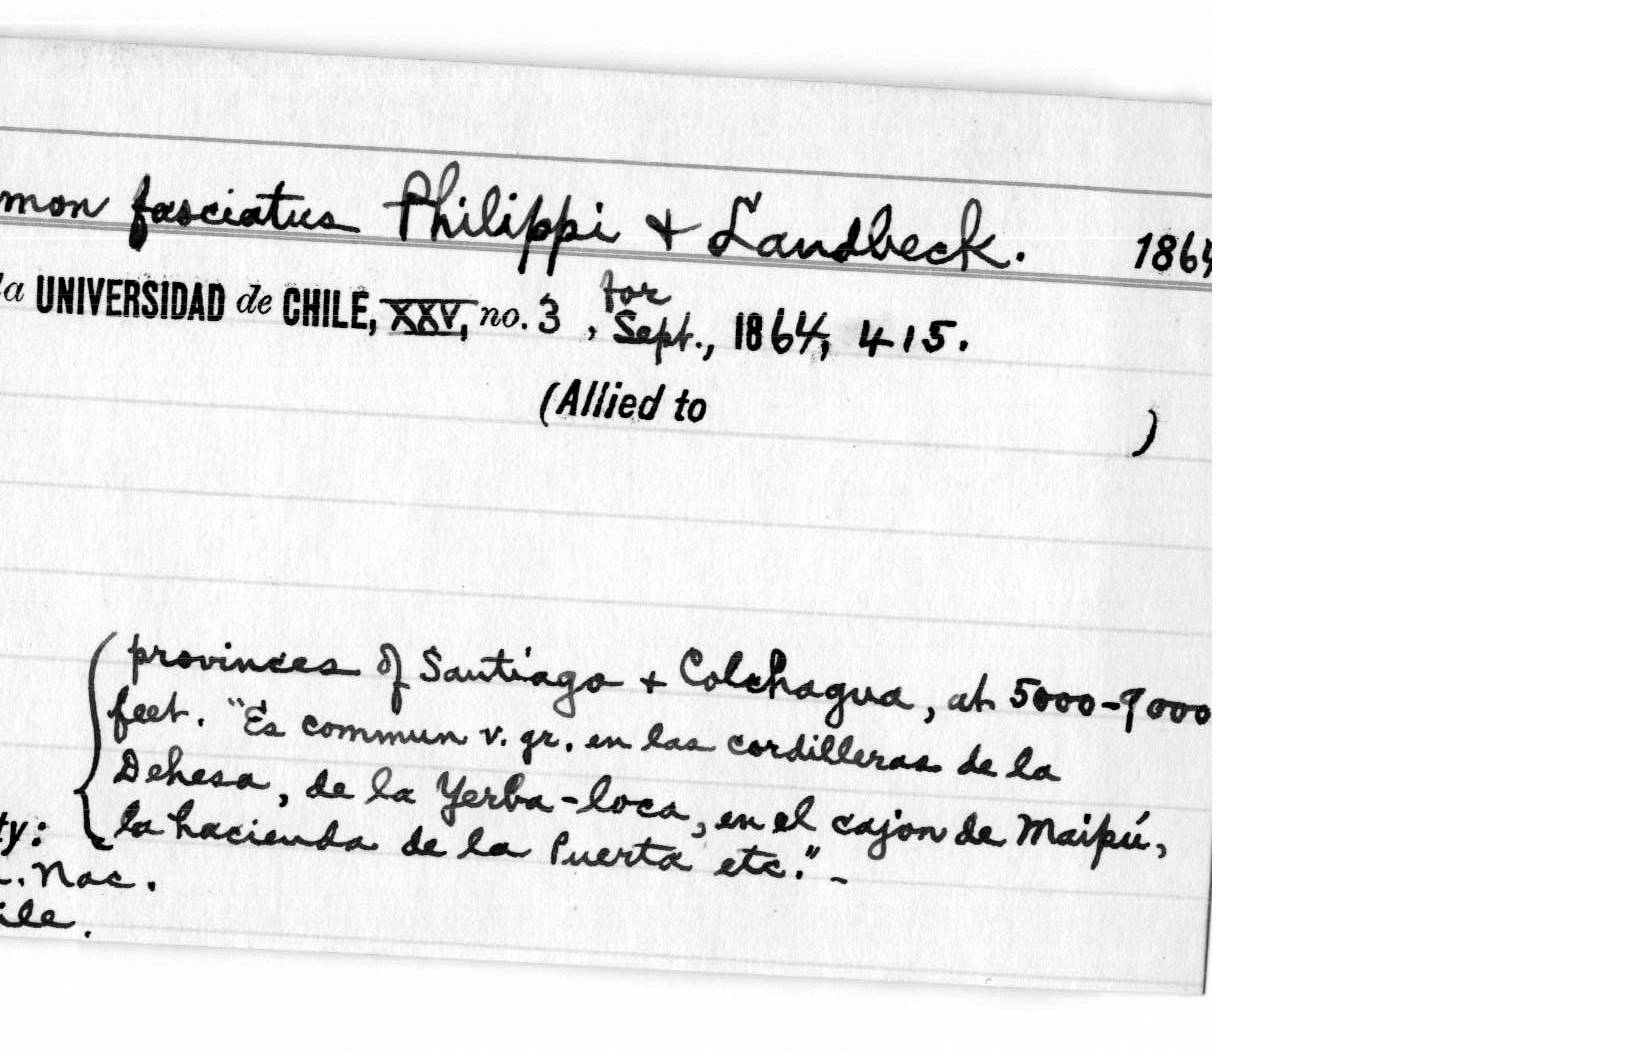 mon fasciatus Philippi + Landbeck. 1864
la UNIVERSIDAD de CHILE, XXV, no. 3, for Sept., 1864, 415.
(Allied to )
provinces of Santiago + Colchagua, at 5000-9000
feet. "Es commun v. gr. en las cordilleras de la
Dehesa, de la Yerba-loca, en el cajon de Maipú,
ty: la hacienda de la Puerta etc." -
. Nac.
ile.